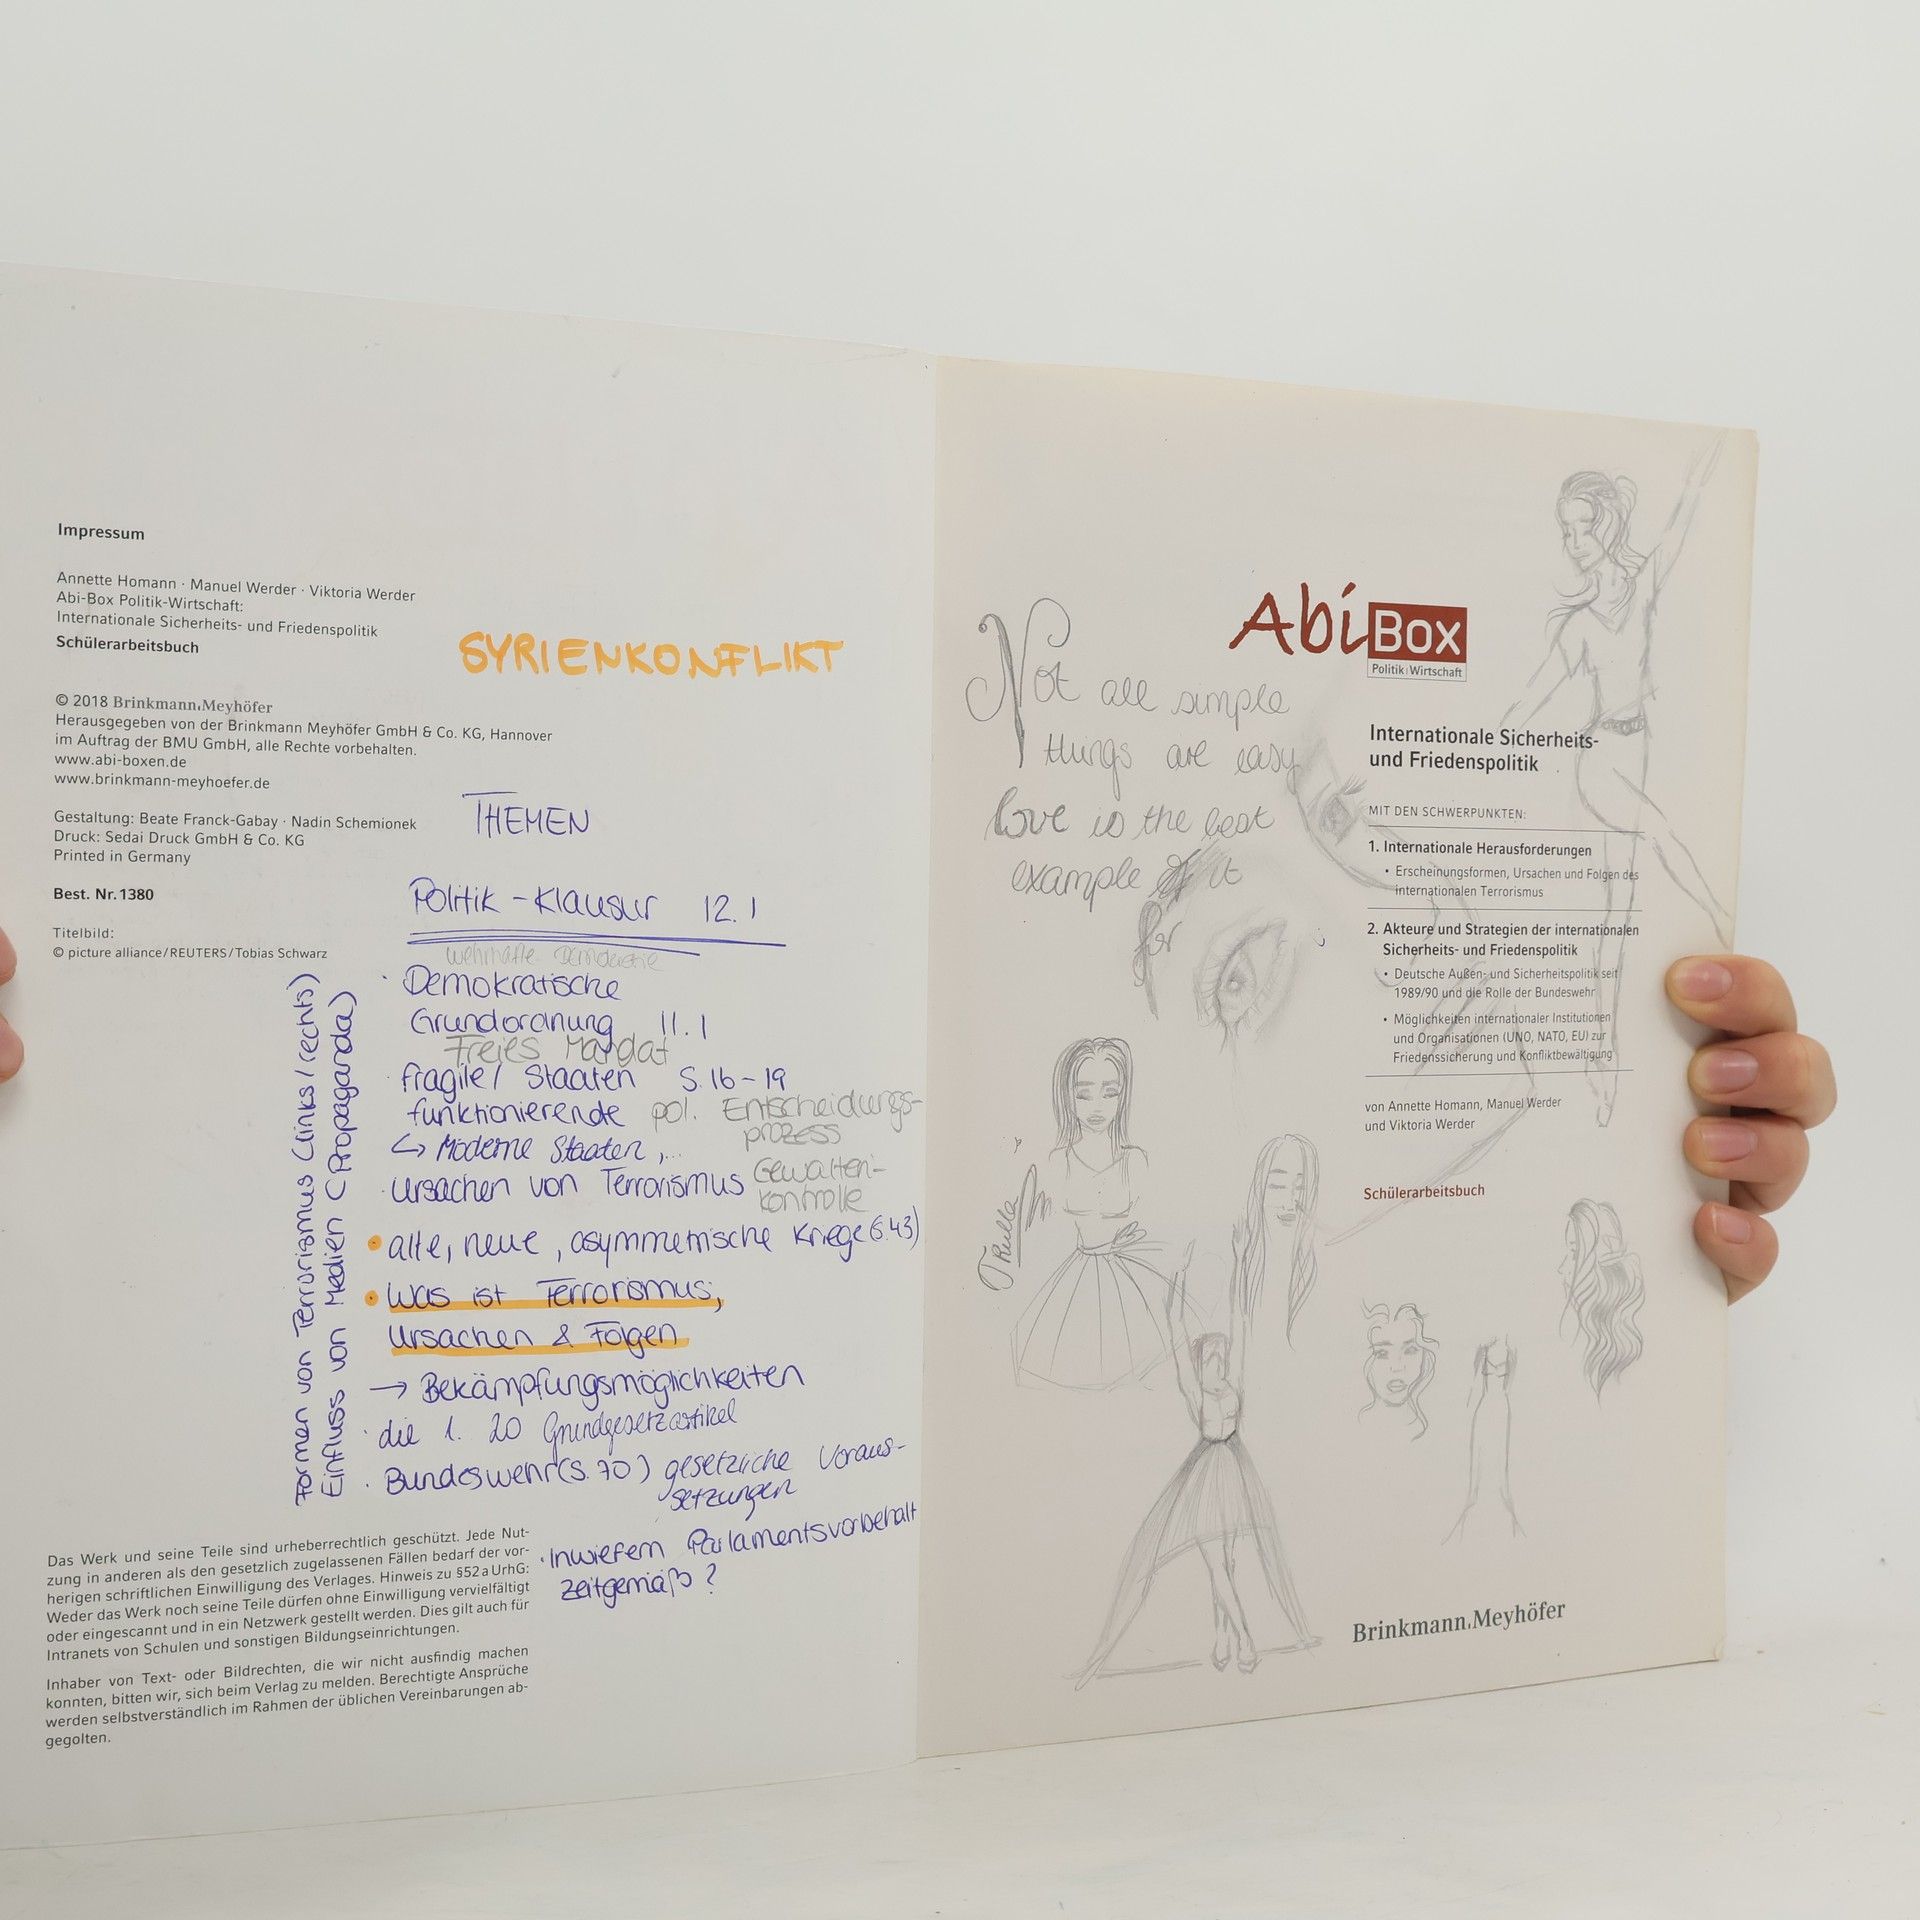 Impressum
Annette Homann · Manuel Werder · Viktoria Werder
Abi-Box Politik-Wirtschaft:
Internationale Sicherheits- und Friedenspolitik
Schülerarbeitsbuch
SYRIENKONFLIKT
© 2018 Brinkmann.Meyhöfer
Herausgegeben von der Brinkmann Meyhöfer GmbH & Co. KG, Hannover
im Auftrag der BMU GmbH, alle Rechte vorbehalten.
www.abi-boxen.de
www.brinkmann-meyhoefer.de
Gestaltung: Beate Franck-Gabay · Nadin Schemionek
Druck: Sedai Druck GmbH & Co. KG
Printed in Germany
Best. Nr. 1380
Titelbild:
© picture alliance/REUTERS/Tobias Schwarz
THEMEN
Politik - Klausur 12.1
wehrhafte Demokratie
· Demokratische
Grundordnung 11.1
Freies Mandat
· fragile / Staaten S. 16-19
funktionierende pol. Entscheidungs-
prozess
↳ Moderne Staaten,...
· Ursachen von Terrorismus Gewalten-
kontrolle
• alte, neue, asymmetrische Kriege (S.43)
• Was ist Terrorismus,
Ursachen & Folgen
→ Bekämpfungsmöglichkeiten
· die 1. 20 Grundgesetzartikel
· Bundeswehr (S. 70) gesetzliche Voraus-
setzungen
· Inwiefern Parlamentsvorbehalt
zeitgemäß?
Formen von Terrorismus (links/rechts)
Einfluss von Medien (Propaganda)
Das Werk und seine Teile sind urheberrechtlich geschützt. Jede Nut-
zung in anderen als den gesetzlich zugelassenen Fällen bedarf der vor-
herigen schriftlichen Einwilligung des Verlages. Hinweis zu §52 a UrhG:
Weder das Werk noch seine Teile dürfen ohne Einwilligung vervielfältigt
oder eingescannt und in ein Netzwerk gestellt werden. Dies gilt auch für
Intranets von Schulen und sonstigen Bildungseinrichtungen.
Inhaber von Text- oder Bildrechten, die wir nicht ausfindig machen
konnten, bitten wir, sich beim Verlag zu melden. Berechtigte Ansprüche
werden selbstverständlich im Rahmen der üblichen Vereinbarungen ab-
gegolten.
Abi Box
Politik Wirtschaft
Not all simple
things are easy
love is the best
example it
for
Internationale Sicherheits-
und Friedenspolitik
MIT DEN SCHWERPUNKTEN:
1. Internationale Herausforderungen
• Erscheinungsformen, Ursachen und Folgen des
internationalen Terrorismus
2. Akteure und Strategien der internationalen
Sicherheits- und Friedenspolitik
• Deutsche Außen- und Sicherheitspolitik seit
1989/90 und die Rolle der Bundeswehr
• Möglichkeiten internationaler Institutionen
und Organisationen (UNO, NATO, EU) zur
Friedenssicherung und Konfliktbewältigung
von Annette Homann, Manuel Werder
und Viktoria Werder
Schülerarbeitsbuch
Brinkmann.Meyhöfer